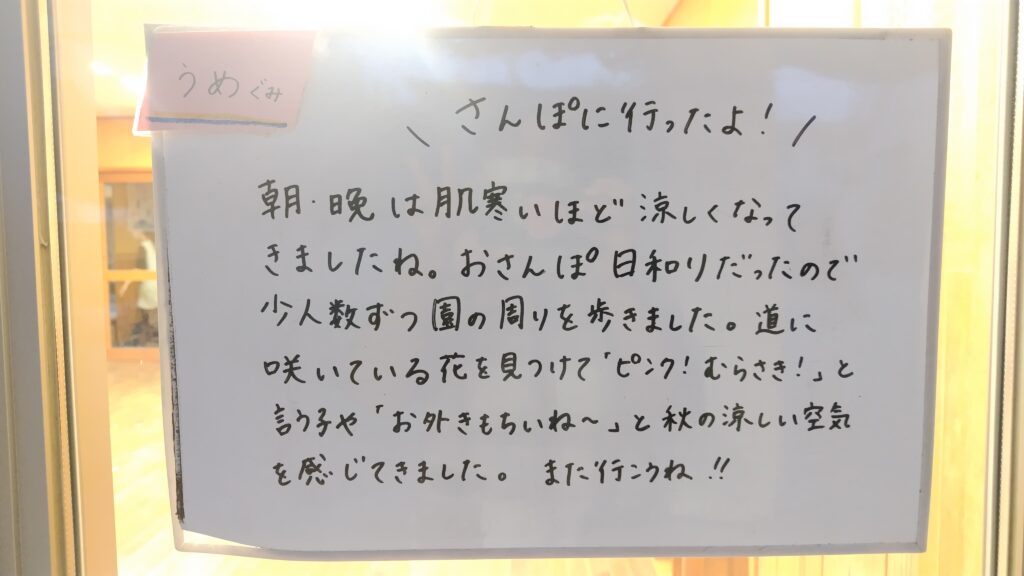 うめぐみ
\ さんぽに行ったよ! /
朝・晩は肌寒いほど涼しくなって
きましたね。おさんぽ日和りだったので
少人数ずつ園の周りを歩きました。道に
咲いている花を見つけて「ピンク!むらさき!」と
言う子や「お外きもちいね〜」と秋の涼しい空気
を感じてきました。 また行こうね!!